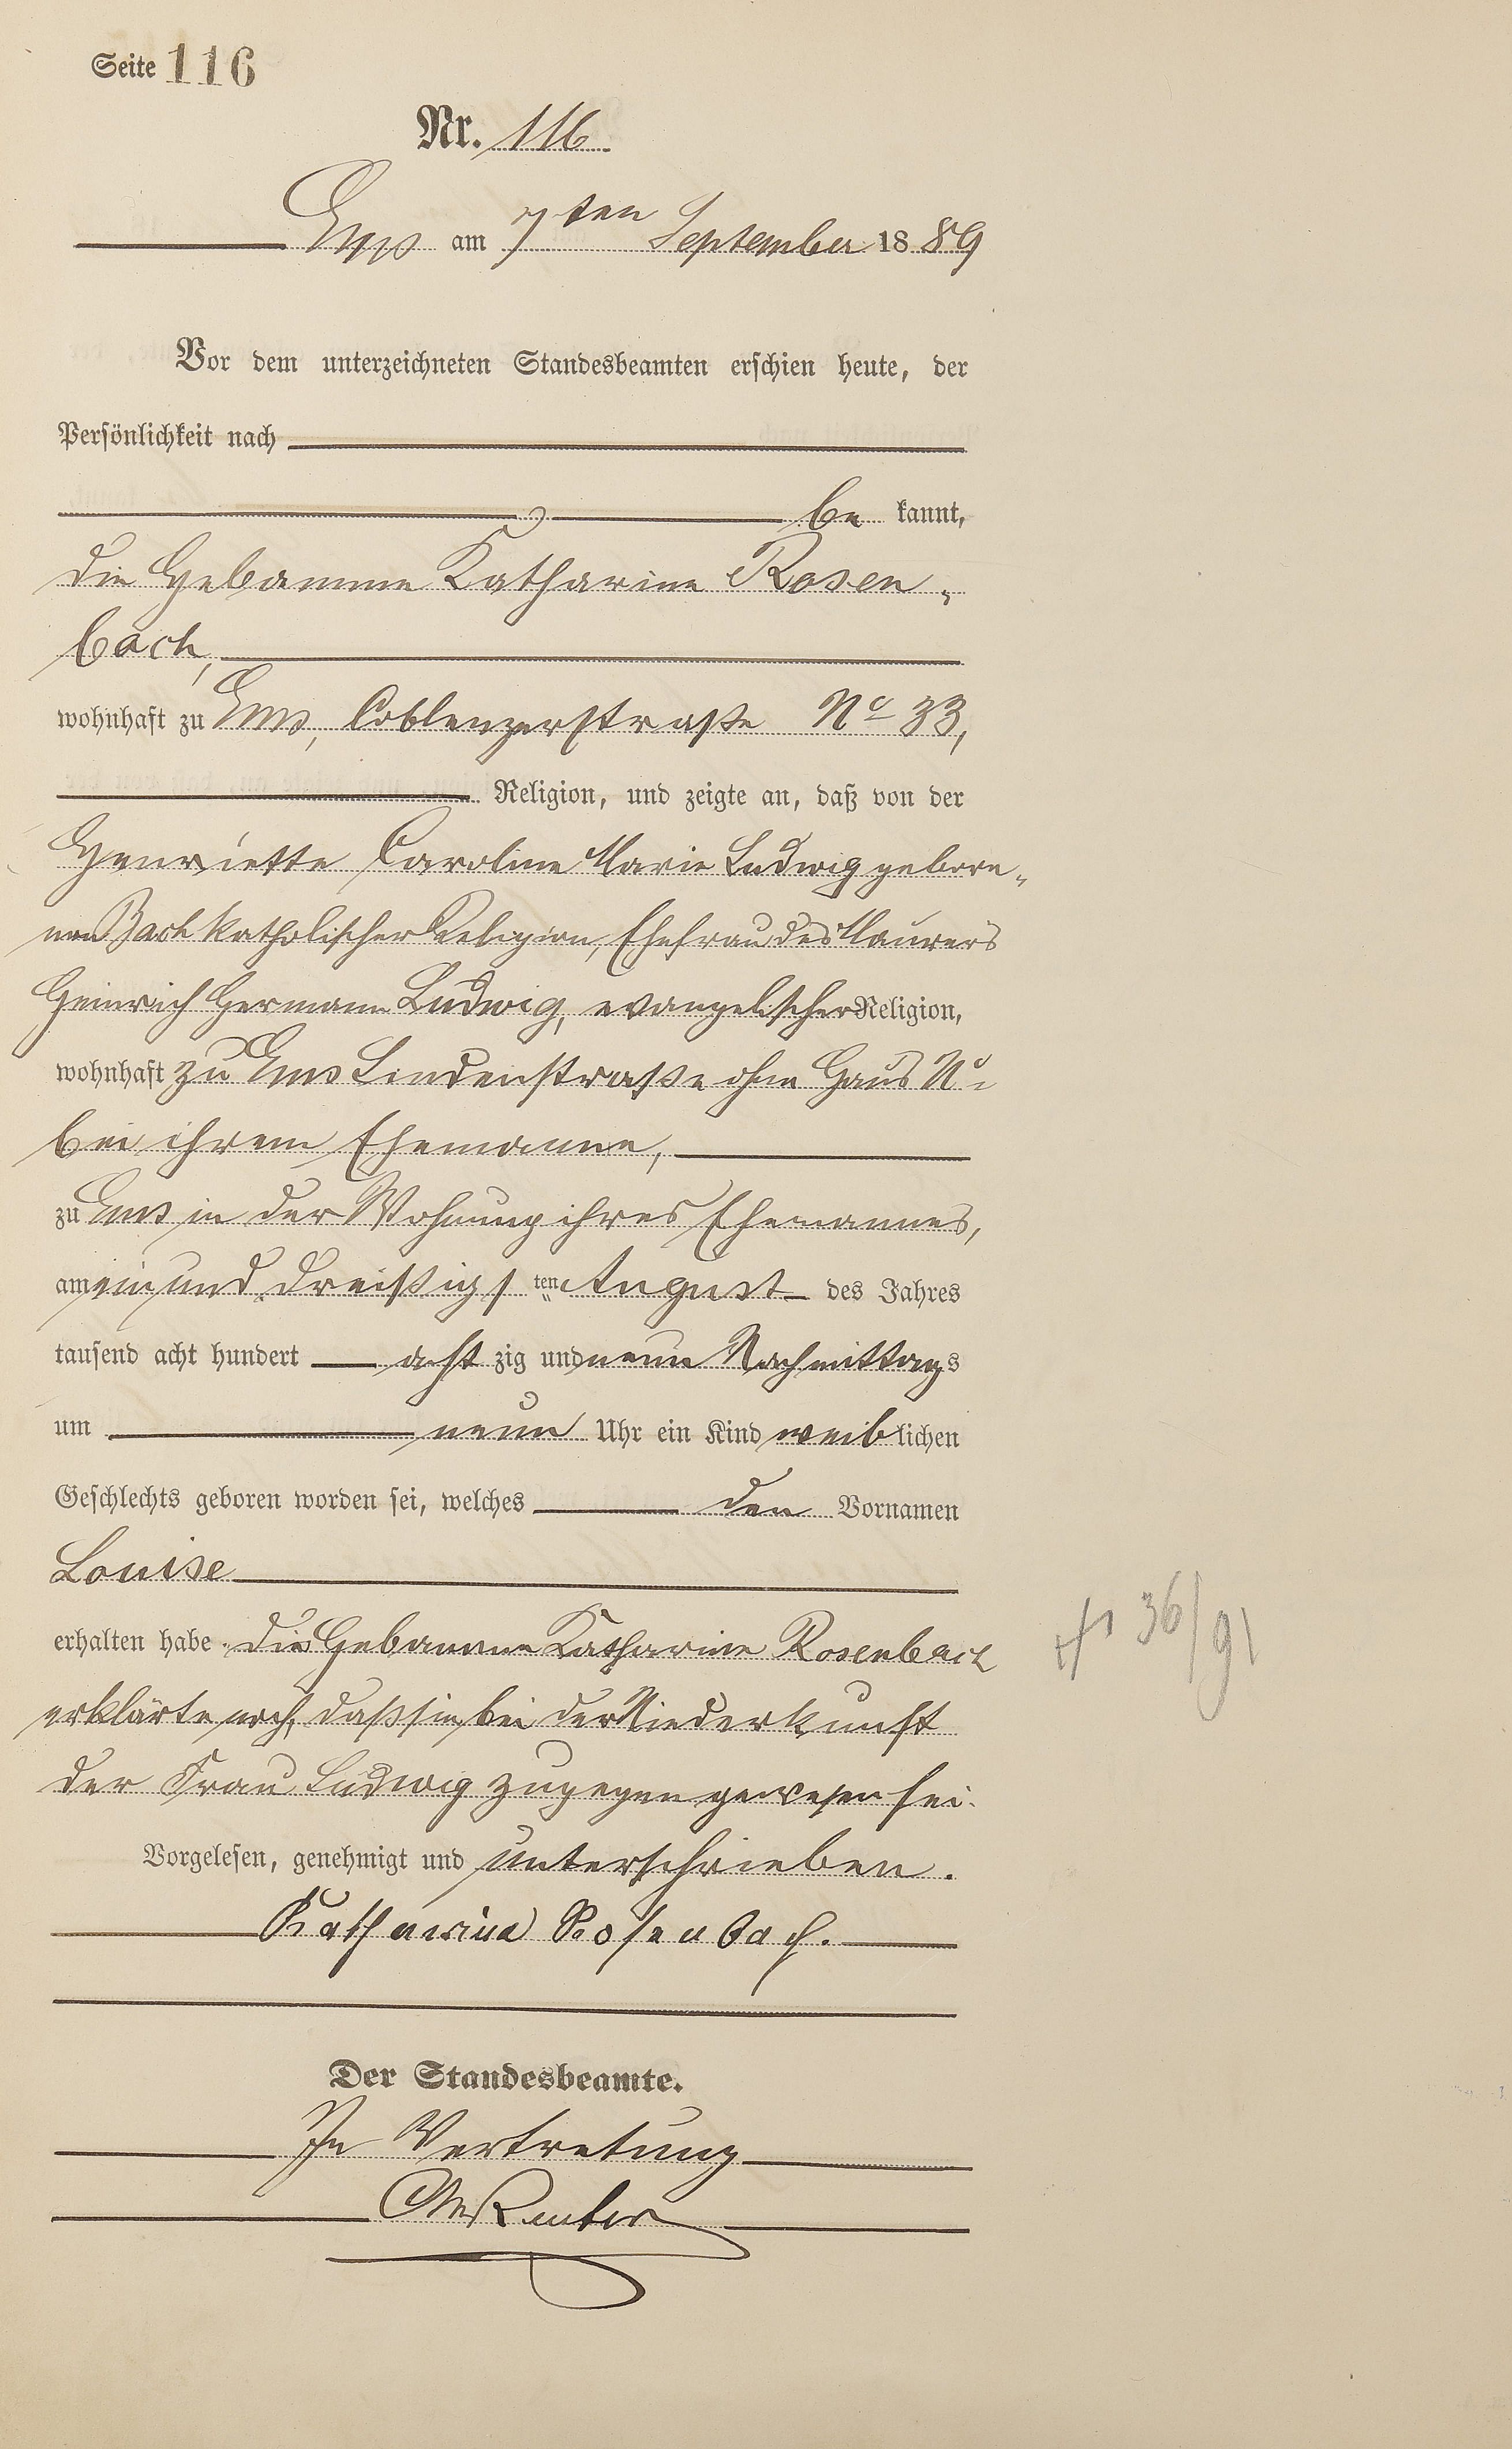 Seite 116
Nr. 116.
Ems am 7ten September 1889
Vor dem unterzeichneten Standesbeamten erschien heute, der
Persönlichkeit nach
be kannt,
die Hebamme Katharine Rosen-
bach,
wohnhaft zu Ems, Coblenzerstraße No 33,
Religion, und zeigte an, daß von der
Henriette Caroline Marie Ludwig gebore-
nen Bach katholischer Religion, Ehefrau des Maurers
Heinrich Hermann Ludwig, evangelischer Religion,
wohnhaft zu Ems Lindenstraße ohne Haus No
bei ihrem Ehemanne,
zu Ems in der Wohnung ihres Ehemannes,
am ein und dreißigsten August des Jahres
tausend acht hundert acht zig und neun Nachmittags
um neun Uhr ein Kind weiblichen
Geschlechts geboren worden sei, welches den Vornamen
Louise
erhalten habe. Die Hebamme Katharine Rosenbach
erklärte noch, daß sie bei der Niederkunft
der Frau Ludwig zugegen gewesen sei.
Vorgelesen, genehmigt und unterschrieben.
Katharina Rosenbach.
Der Standesbeamte.
In Vertretung
36/91